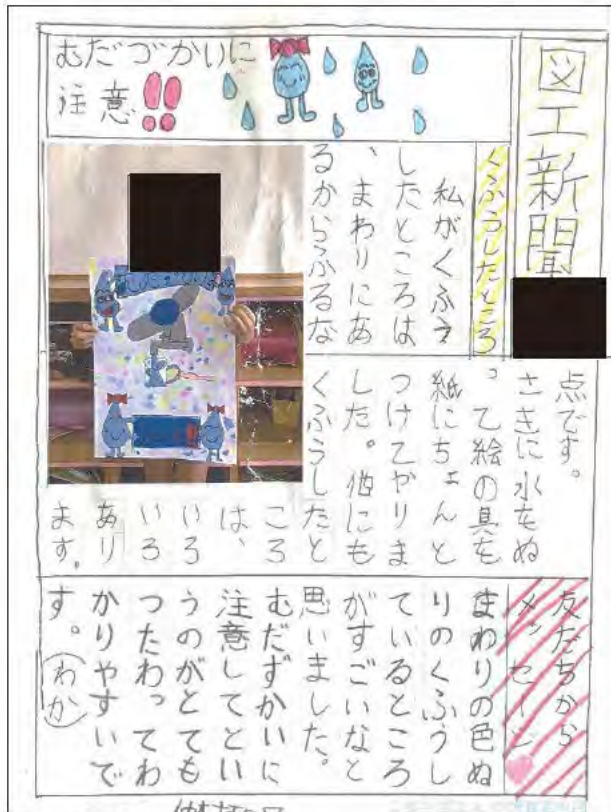 図工新聞
むだづかいに
注意!!
くふうしたところ
私がくふう
したところは
、まわりにあ
るからふるな
点です。
さきに水をぬ
って絵の具を
紙にちょんと
つけてやりま
した。他にも
くふうしたと
ころ
は、
いろ
いろ
あり
ます。
友だちから
メッセージ
まわりの色ぬ
りのくふうし
ているところ
がすごいなと
思いました。
むだずかいに
注意してとい
うのがとても
つたわってわ
かりやすいで
す。(わか)